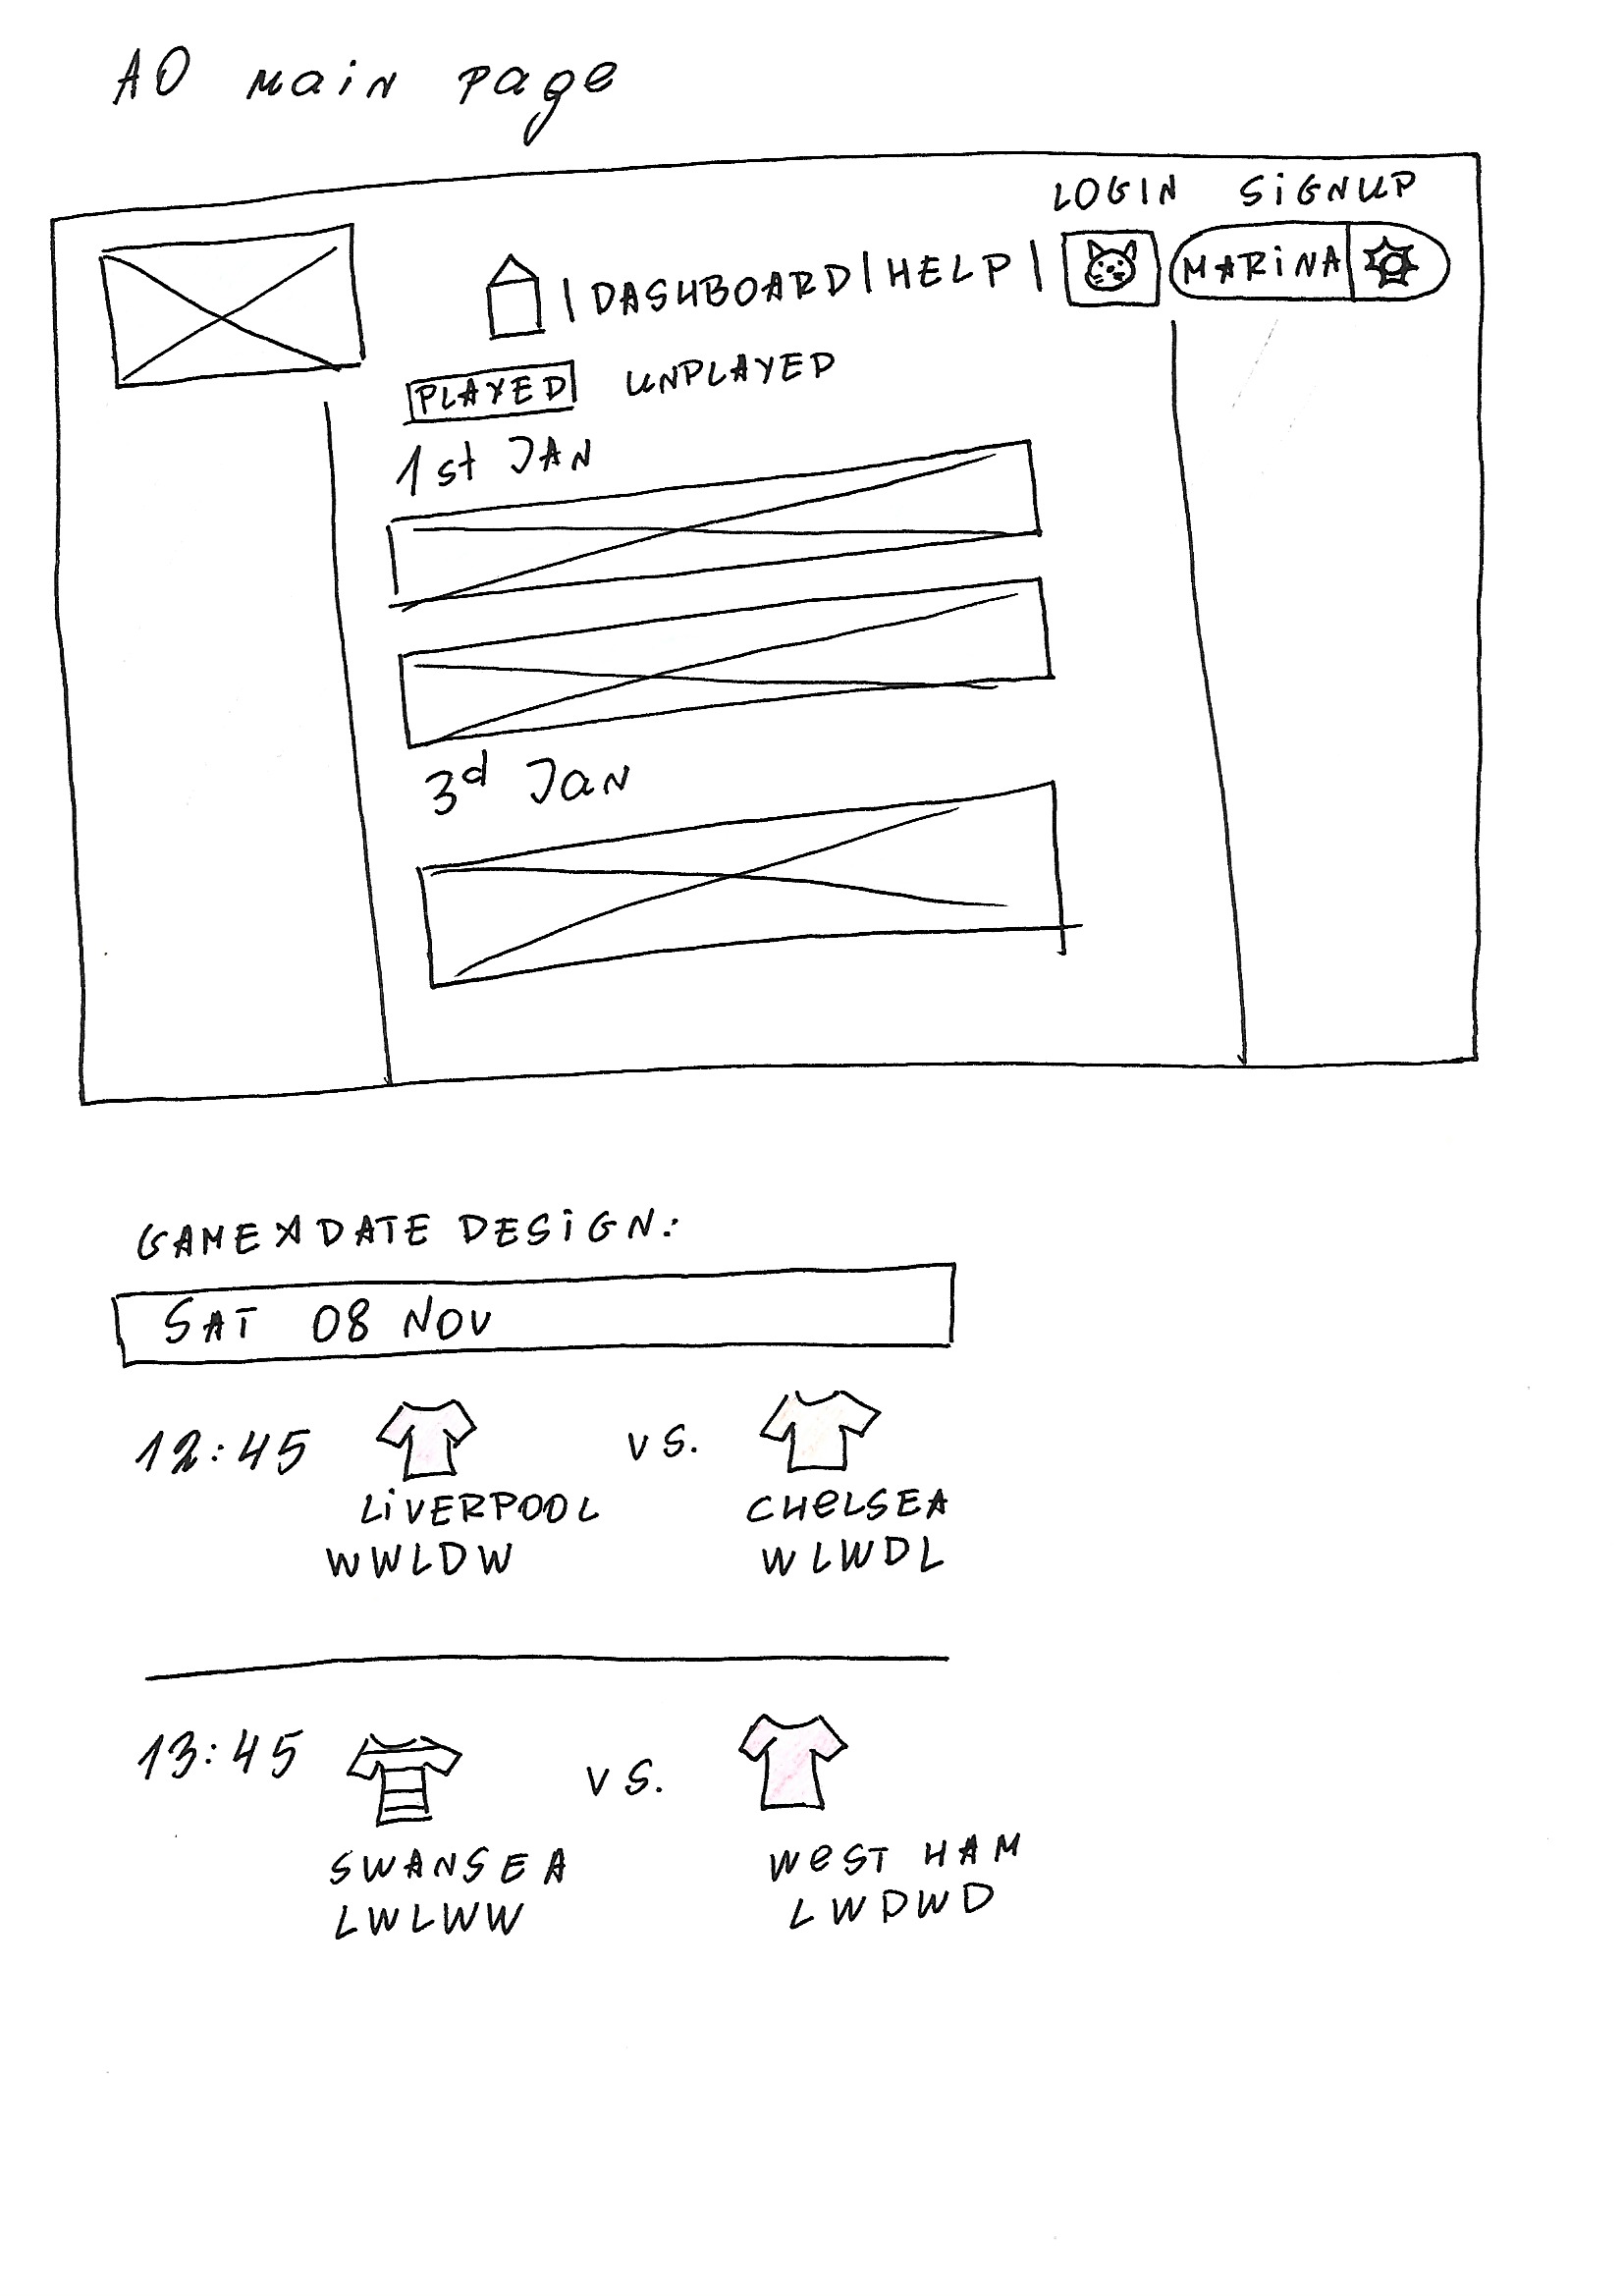 AO main page
LOGIN SIGNUP
| DASHBOARD | HELP | MARINA
PLAYED UNPLAYED
1st JAN
3d Jan
GAME & DATE DESIGN:
SAT 08 NOV
12:45 vs.
LIVERPOOL CHELSEA
WWLDW WLWDL
13:45 vs.
SWANSEA WEST HAM
LWLWW LWDWD